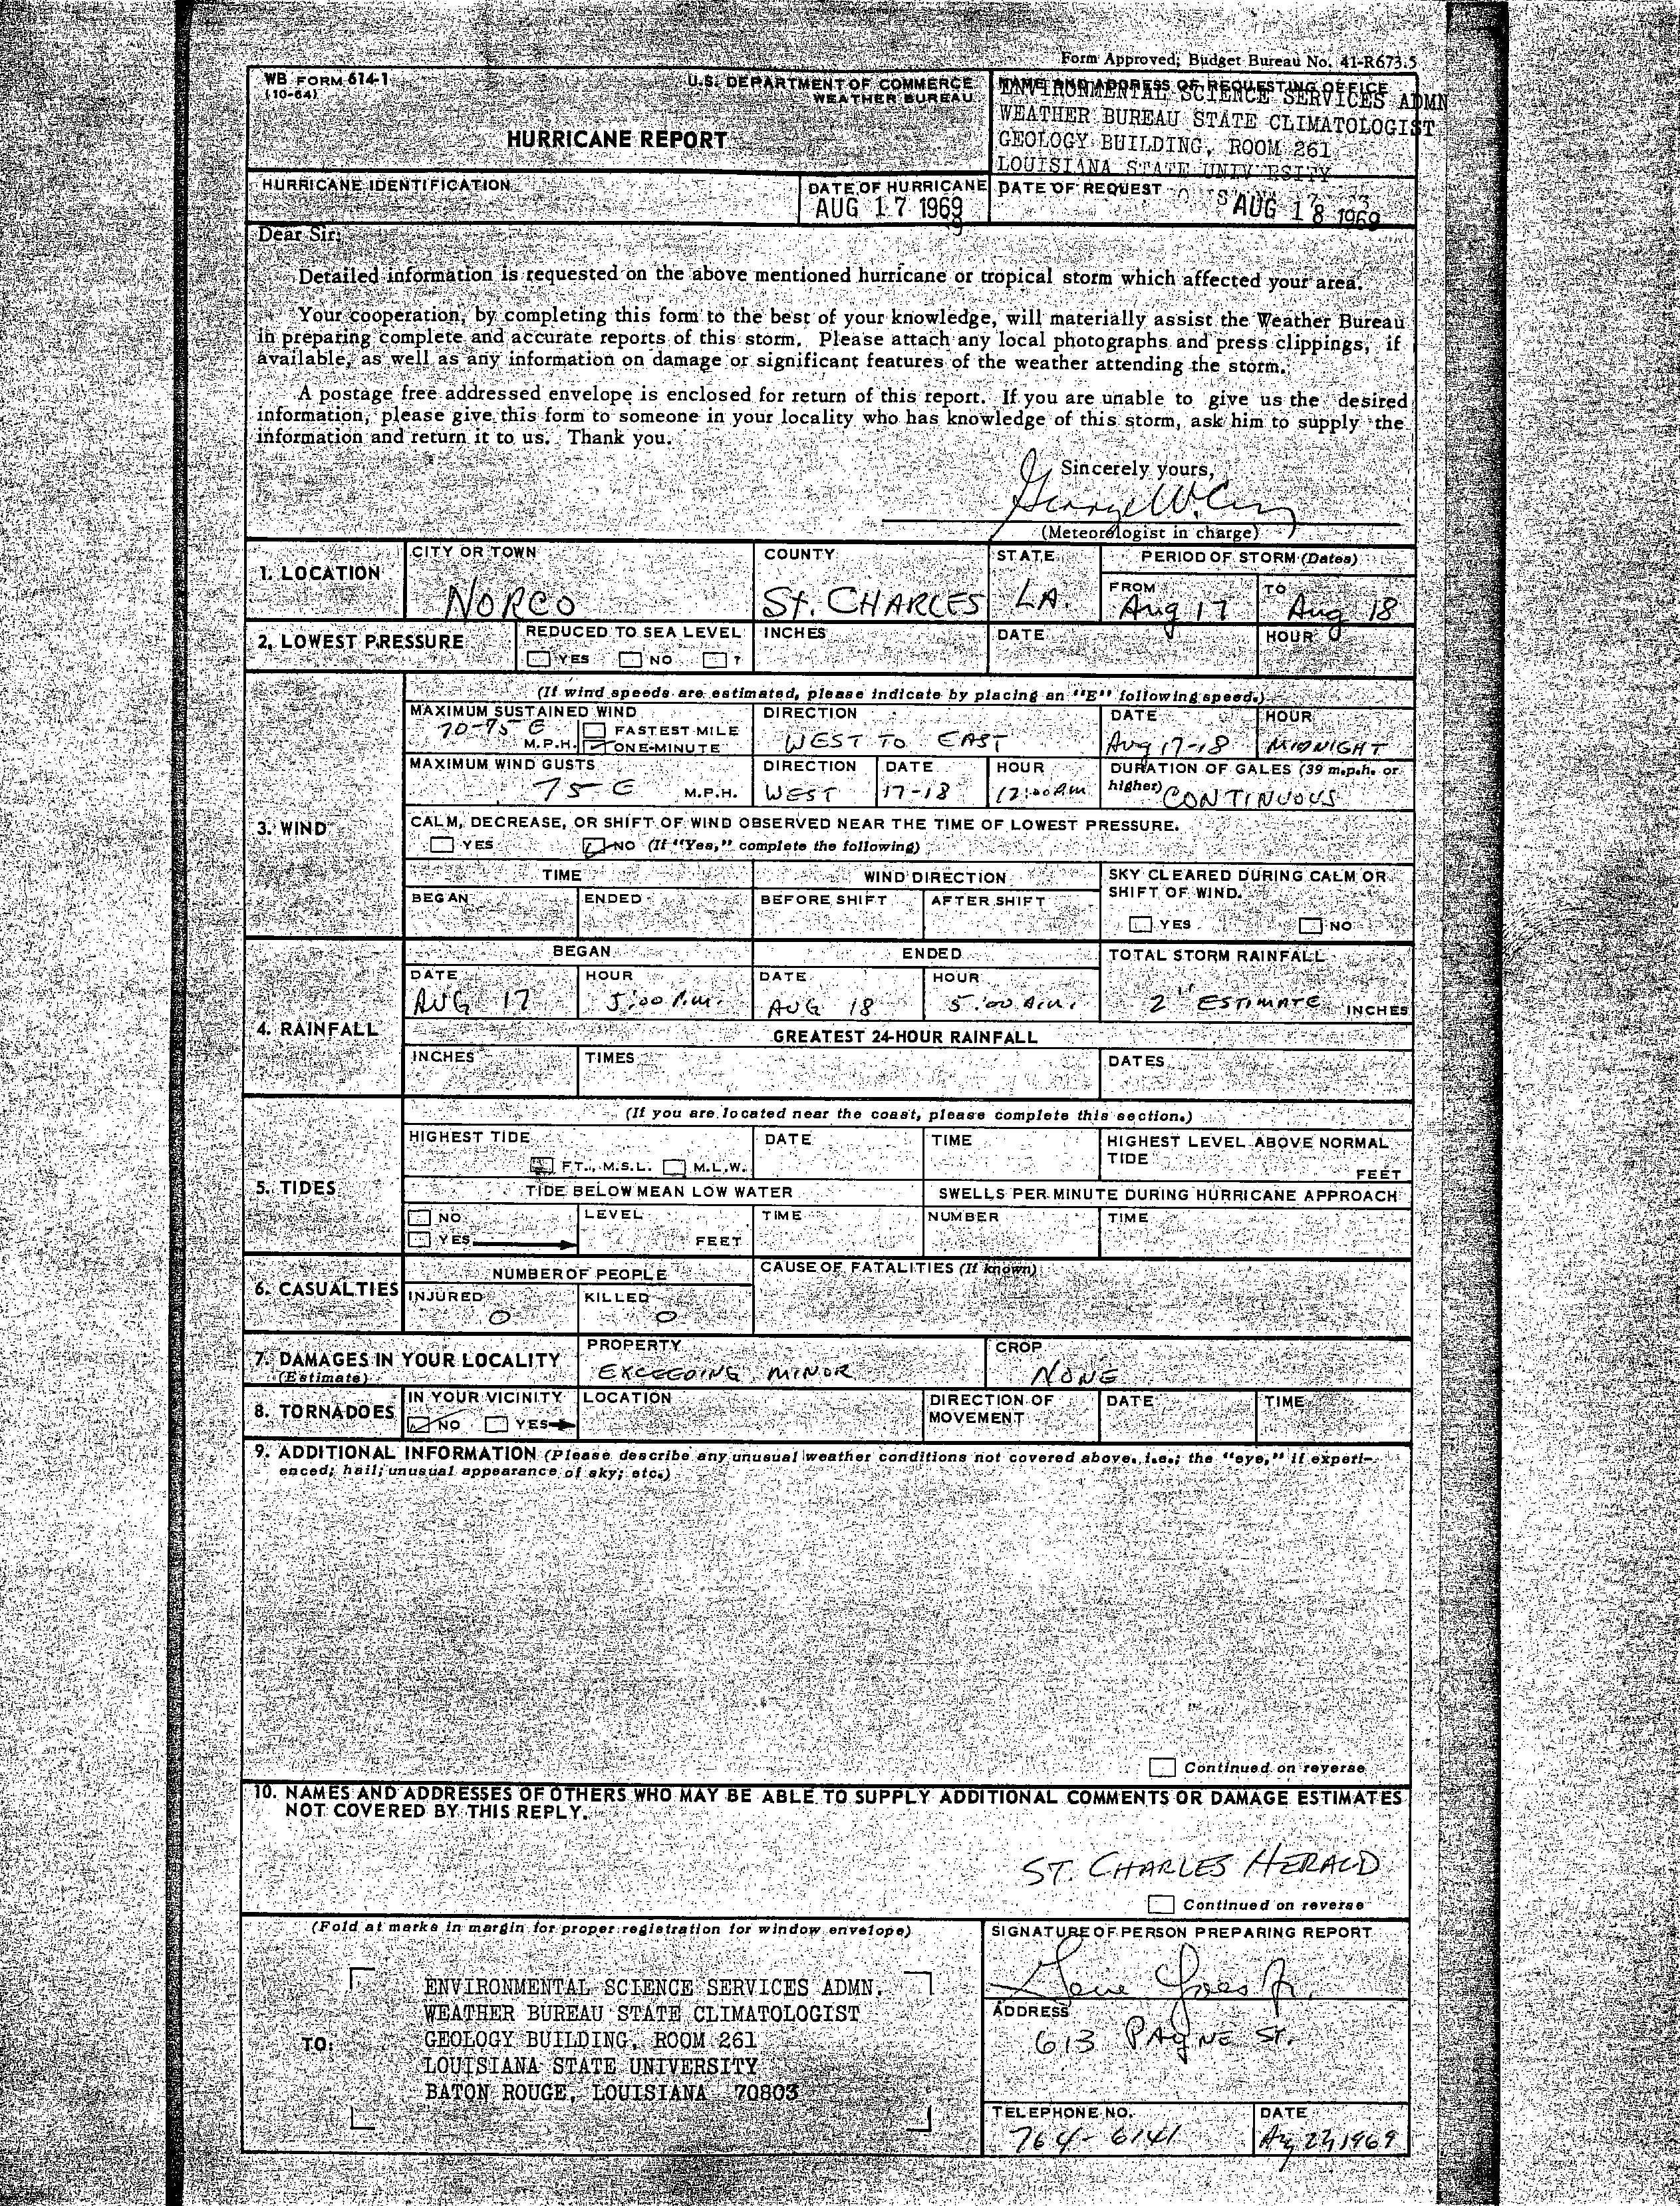 Form Approved; Budget Bureau No. 41-R673.5
WB FORM 614-1
(10-64)
U.S. DEPARTMENT OF COMMERCE
WEATHER BUREAU
HURRICANE REPORT
NAME AND ADDRESS OF REQUESTING OFFICE
ENVIRONMENTAL SCIENCE SERVICES ADMN
WEATHER BUREAU STATE CLIMATOLOGIST
GEOLOGY BUILDING, ROOM 261
LOUISIANA STATE
HURRICANE IDENTIFICATION
DATE OF HURRICANE
AUG 17 1969
DATE OF REQUEST
AUG 18 1969
Dear Sir:
Detailed information is requested on the above mentioned hurricane or tropical storm which affected your area.
Your cooperation, by completing this form to the best of your knowledge, will materially assist the Weather Bureau
in preparing complete and accurate reports of this storm. Please attach any local photographs and press clippings, if
available, as well as any information on damage or significant features of the weather attending the storm.
A postage free addressed envelope is enclosed for return of this report. If you are unable to give us the desired
information, please give this form to someone in your locality who has knowledge of this storm, ask him to supply the
information and return it to us. Thank you.
Sincerely yours,
George W.
(Meteorologist in charge)
1. LOCATION
CITY OR TOWN
NORCO
COUNTY
St. CHARLES
STATE
LA.
PERIOD OF STORM (Dates)
FROM
Aug 17
TO
Aug 18
2. LOWEST PRESSURE
REDUCED TO SEA LEVEL
YES NO ?
INCHES
DATE
HOUR
3. WIND
(If wind speeds are estimated, please indicate by placing an "E" following speed.)
MAXIMUM SUSTAINED WIND
70-75 E
M.P.H.
FASTEST MILE
ONE-MINUTE
DIRECTION
WEST TO EAST
DATE
Aug 17-18
HOUR
MIDNIGHT
MAXIMUM WIND GUSTS
75 E
M.P.H.
DIRECTION
WEST
DATE
17-18
HOUR
12:00 AM
DURATION OF GALES (39 m.p.h. or
higher)
CONTINUOUS
CALM, DECREASE, OR SHIFT OF WIND OBSERVED NEAR THE TIME OF LOWEST PRESSURE.
YES NO (If "Yes," complete the following)
TIME
WIND DIRECTION
SKY CLEARED DURING CALM OR
SHIFT OF WIND.
BEGAN
ENDED
BEFORE SHIFT
AFTER SHIFT
YES NO
4. RAINFALL
BEGAN
ENDED
TOTAL STORM RAINFALL
DATE
AUG 17
HOUR
5:00 P.M.
DATE
AUG 18
HOUR
5:00 A.M.
2" ESTIMATE INCHES
GREATEST 24-HOUR RAINFALL
INCHES
TIMES
DATES
5. TIDES
(If you are located near the coast, please complete this section.)
HIGHEST TIDE
FT., M.S.L. M.L.W.
DATE
TIME
HIGHEST LEVEL ABOVE NORMAL
TIDE
FEET
TIDE BELOW MEAN LOW WATER
SWELLS PER MINUTE DURING HURRICANE APPROACH
NO
YES
LEVEL
FEET
TIME
NUMBER
TIME
6. CASUALTIES
NUMBER OF PEOPLE
CAUSE OF FATALITIES (If known)
INJURED
0
KILLED
0
7. DAMAGES IN YOUR LOCALITY
(Estimate)
PROPERTY
EXCEEDING MINOR
CROP
NONE
8. TORNADOES
IN YOUR VICINITY
NO YES
LOCATION
DIRECTION OF
MOVEMENT
DATE
TIME
9. ADDITIONAL INFORMATION (Please describe any unusual weather conditions not covered above, i.e.; the "eye," if experi-
enced; hail; unusual appearance of sky; etc.)
Continued on reverse
10. NAMES AND ADDRESSES OF OTHERS WHO MAY BE ABLE TO SUPPLY ADDITIONAL COMMENTS OR DAMAGE ESTIMATES
NOT COVERED BY THIS REPLY.
ST. CHARLES HERALD
Continued on reverse
(Fold at marks in margin for proper registration for window envelope)
TO:
ENVIRONMENTAL SCIENCE SERVICES ADMN.
WEATHER BUREAU STATE CLIMATOLOGIST
GEOLOGY BUILDING, ROOM 261
LOUISIANA STATE UNIVERSITY
BATON ROUGE, LOUISIANA 70803
SIGNATURE OF PERSON PREPARING REPORT
Gene Yoes Jr.
ADDRESS
613 PAYNE ST.
TELEPHONE NO.
764-6141
DATE
1969